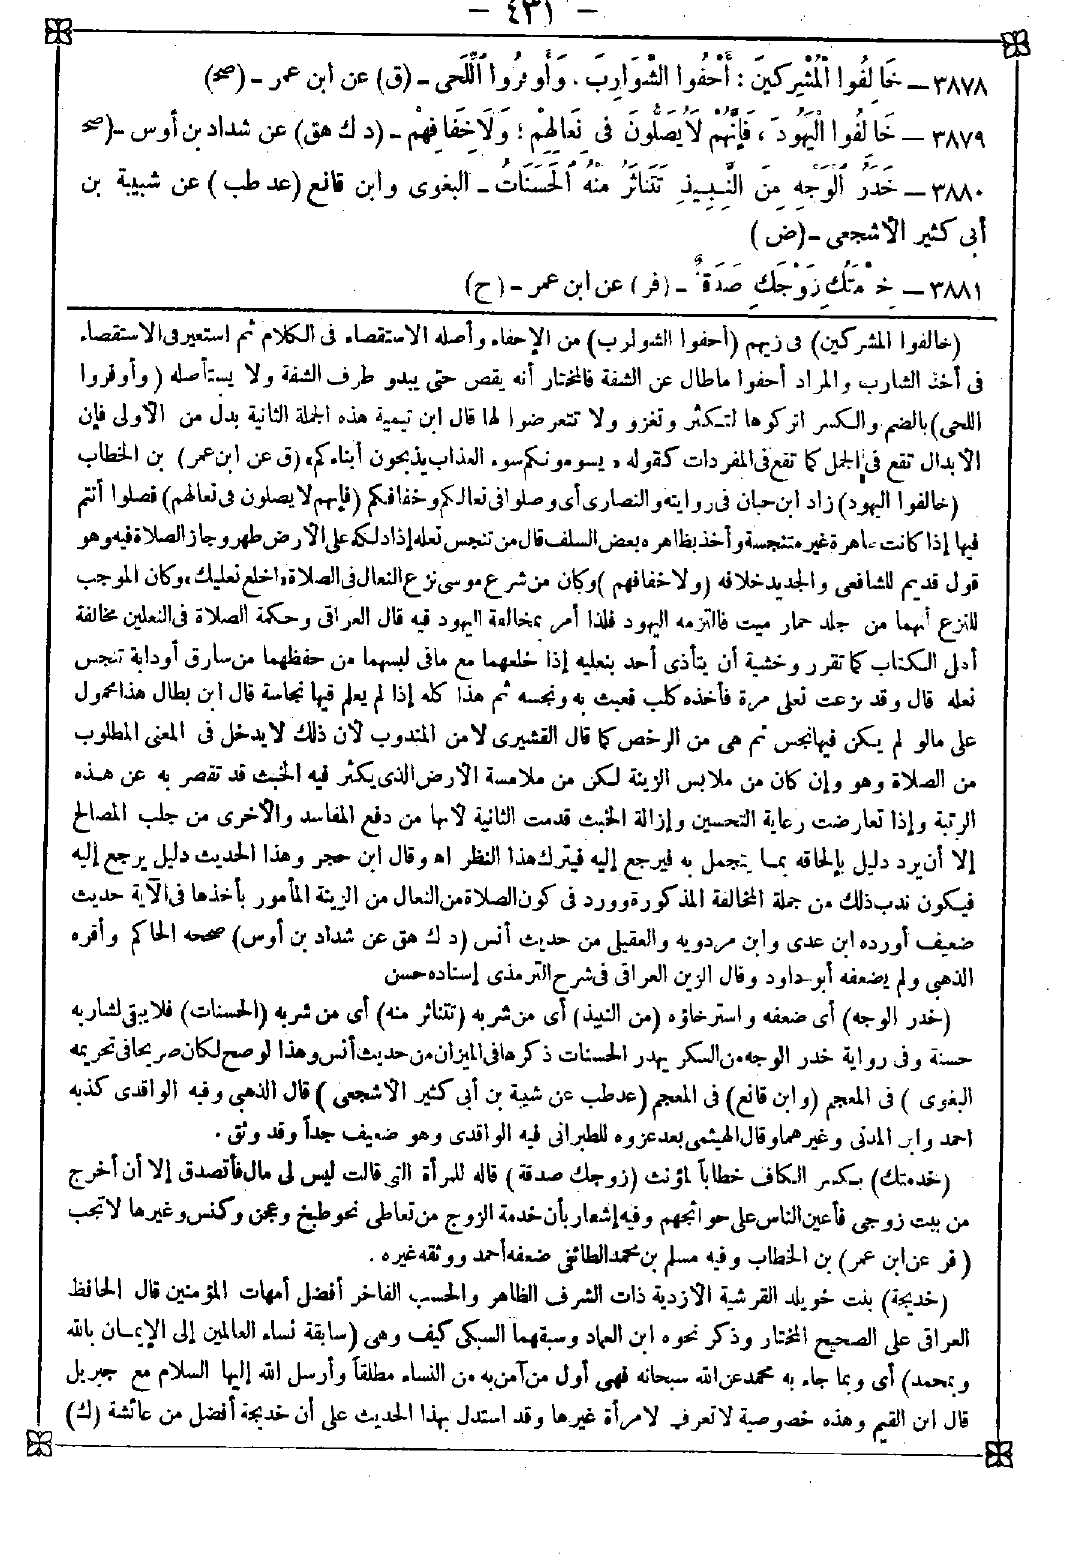 - ٤٣١ -
٣٨٧٨ – خَالِفُوا الْمُشْرِكِينَ: أَحْفُوا الشَّوَارِبَ، وَأَوْفِرُوا اللِّحَى – (ق) عن ابن عمر – (صح)
٣٨٧٩ – خَالِفُوا الْيَهُودَ، فَإِنَّهُمْ لَا يُصَلُّونَ فِي نِعَالِهِمْ؛ وَلَا خِفَافِهِمْ – (د ك هق) عن شداد بن أوس – (صح
٣٨٨٠ – خَدَرُ الْوَجْهِ مِنَ النَّبِيذِ تَتَنَاثَرُ مِنْهُ الْحَسَنَاتُ – البغوى وابن قانع (عد طب) عن شيبة بن
أبى كثير الأشجعى – (ض)
٣٨٨١ – خِدْمَتُكِ زَوْجَكِ صَدَقَةٌ – (فر) عن ابن عمر – (ح)
(خالفوا المشركين) فى زيهم (أحفوا الشوارب) من الإحفاء وأصله الاستقصاء فى الكلام ثم استعير فى الاستقصاء
فى أخذ الشارب والمراد أحفوا ماطال عن الشفة فالمختار أنه يقص حتى يبدو طرف الشفة ولا يستأصله (وأوفروا
اللحى) بالضم والكسر اتركوها لتكثر وتغزو ولا تتعرضوا لها قال ابن تيمية هذه الجملة الثانية بدل من الأولى فإن
الإبدال تقع فى الجمل كما تقع فى المفردات كقوله «يسومونكم سوء العذاب يذبحون أبناءكم» (ق عن ابن عمر) بن الخطاب
(خالفوا اليهود) زاد ابن حبان فى روايته والنصارى أى وصلوا فى نعالكم وخفافكم (فإنهم لا يصلون فى نعالهم) فصلوا أنتم
فيها إذا كانت طاهرة غير متنجسة وأخذ بظاهره بعض السلف قال من تنجس نعله إذا دلكه على الأرض طهر وجاز الصلاة فيه وهو
قول قديم للشافعى والجديد خلافه (ولا خفافهم) وكان من شرع موسى نزع النعال فى الصلاة «اخلع نعليك» وكان الموجب
للنزع أنهما من جلد حمار ميت فالتزمه اليهود فلذا أمر بمخالفة اليهود فيه قال العراقى وحكمة الصلاة فى النعلين مخالفة
أهل الكتاب كما تقرر وخشية أن يتأذى أحد بنعليه إذا خلعهما مع مافى لبسهما من حفظهما من سارق أو دابة تنجس
نعله قال وقد نزعت نعلى مرة فأخذه كلب فعبث به ونجسه ثم هذا كله إذا لم يعلم فيها نجاسة قال ابن بطال هذا محمول
على مالو لم يكن فيها نجس ثم هى من الرخص كما قال القشيرى لا من المندوب لأن ذلك لا يدخل فى المعنى المطلوب
من الصلاة وهو وإن كان من ملابس الزينة لكن من ملامسة الأرض الذى يكثر فيه الخبث قد تقصر به عن هذه
الرتبة وإذا تعارضت رعاية التحسين وإزالة الخبث قدمت الثانية لأنها من دفع المفاسد والأخرى من جلب المصالح
إلا أن يرد دليل بإلحاقه بما يتجمل به فيرجع إليه فيترك هذا النظر اه وقال ابن حجر وهذا الحديث دليل يرجع إليه
فيكون ندب ذلك من جملة المخالفة المذكورة وورد فى كون الصلاة من النعال من الزينة المأمور بأخذها فى الآية حديث
ضعيف أورده ابن عدى وابن مردويه والعقيلى من حديث أنس (د ك هق عن شداد بن أوس) صححه الحاكم وأقره
الذهبى ولم يضعفه أبو داود وقال الزين العراقى فى شرح الترمذى إسناده حسن
(خدر الوجه) أى ضعفه واسترخاؤه (من النبيذ) أى من شربه (تتناثر منه) أى من شربه (الحسنات) فلا يبقى لشاربه
حسنة وفى رواية خدر الوجه من السكر يهدر الحسنات ذكرها فى الميزان من حديث أنس وهذا لو صح لكان صريحا فى تحريمه
البغوى) فى المعجم (وابن قانع) فى المعجم (عد طب عن شيبة بن أبى كثير الأشجعى) قال الذهبى وفيه الواقدى كذبه
احمد وابن المدنى وغيرهما وقال الهيثمى بعد عزوه للطبرانى فيه الواقدى وهو ضعيف جداً وقد وثق.
(خدمتك) بكسر الكاف خطاباً لمؤنث (زوجك صدقة) قاله للمرأة التى قالت ليس لى مال فأتصدق إلا أن أخرج
من بيت زوجى فأعين الناس على حوائجهم وفيه إشعار بأن خدمة الزوج من تعاطى نحو طبخ وعجن وكنس وغيرها لا تجب
(فر عن ابن عمر) بن الخطاب وفيه مسلم بن محمد الطائفى ضعفه أحمد ووثقه غيره.
(خديجة) بنت خويلد القرشية الأزدية ذات الشرف الظاهر والحسب الفاخر أفضل أمهات المؤمنين قال الحافظ
العراقى على الصحيح المختار وذكر نحوه ابن العماد وسبقهما السبكى كيف وهى (سابقة نساء العالمين إلى الإيمان بالله
وبمحمد) أى وبما جاء به محمد عن الله سبحانه فهى أول من آمن به من النساء مطلقاً وأرسل الله إليها السلام مع جبريل
قال ابن القيم وهذه خصوصية لا تعرف لامرأة غيرها وقد استدل بهذا الحديث على أن خديجة أفضل من عائشة (ك)